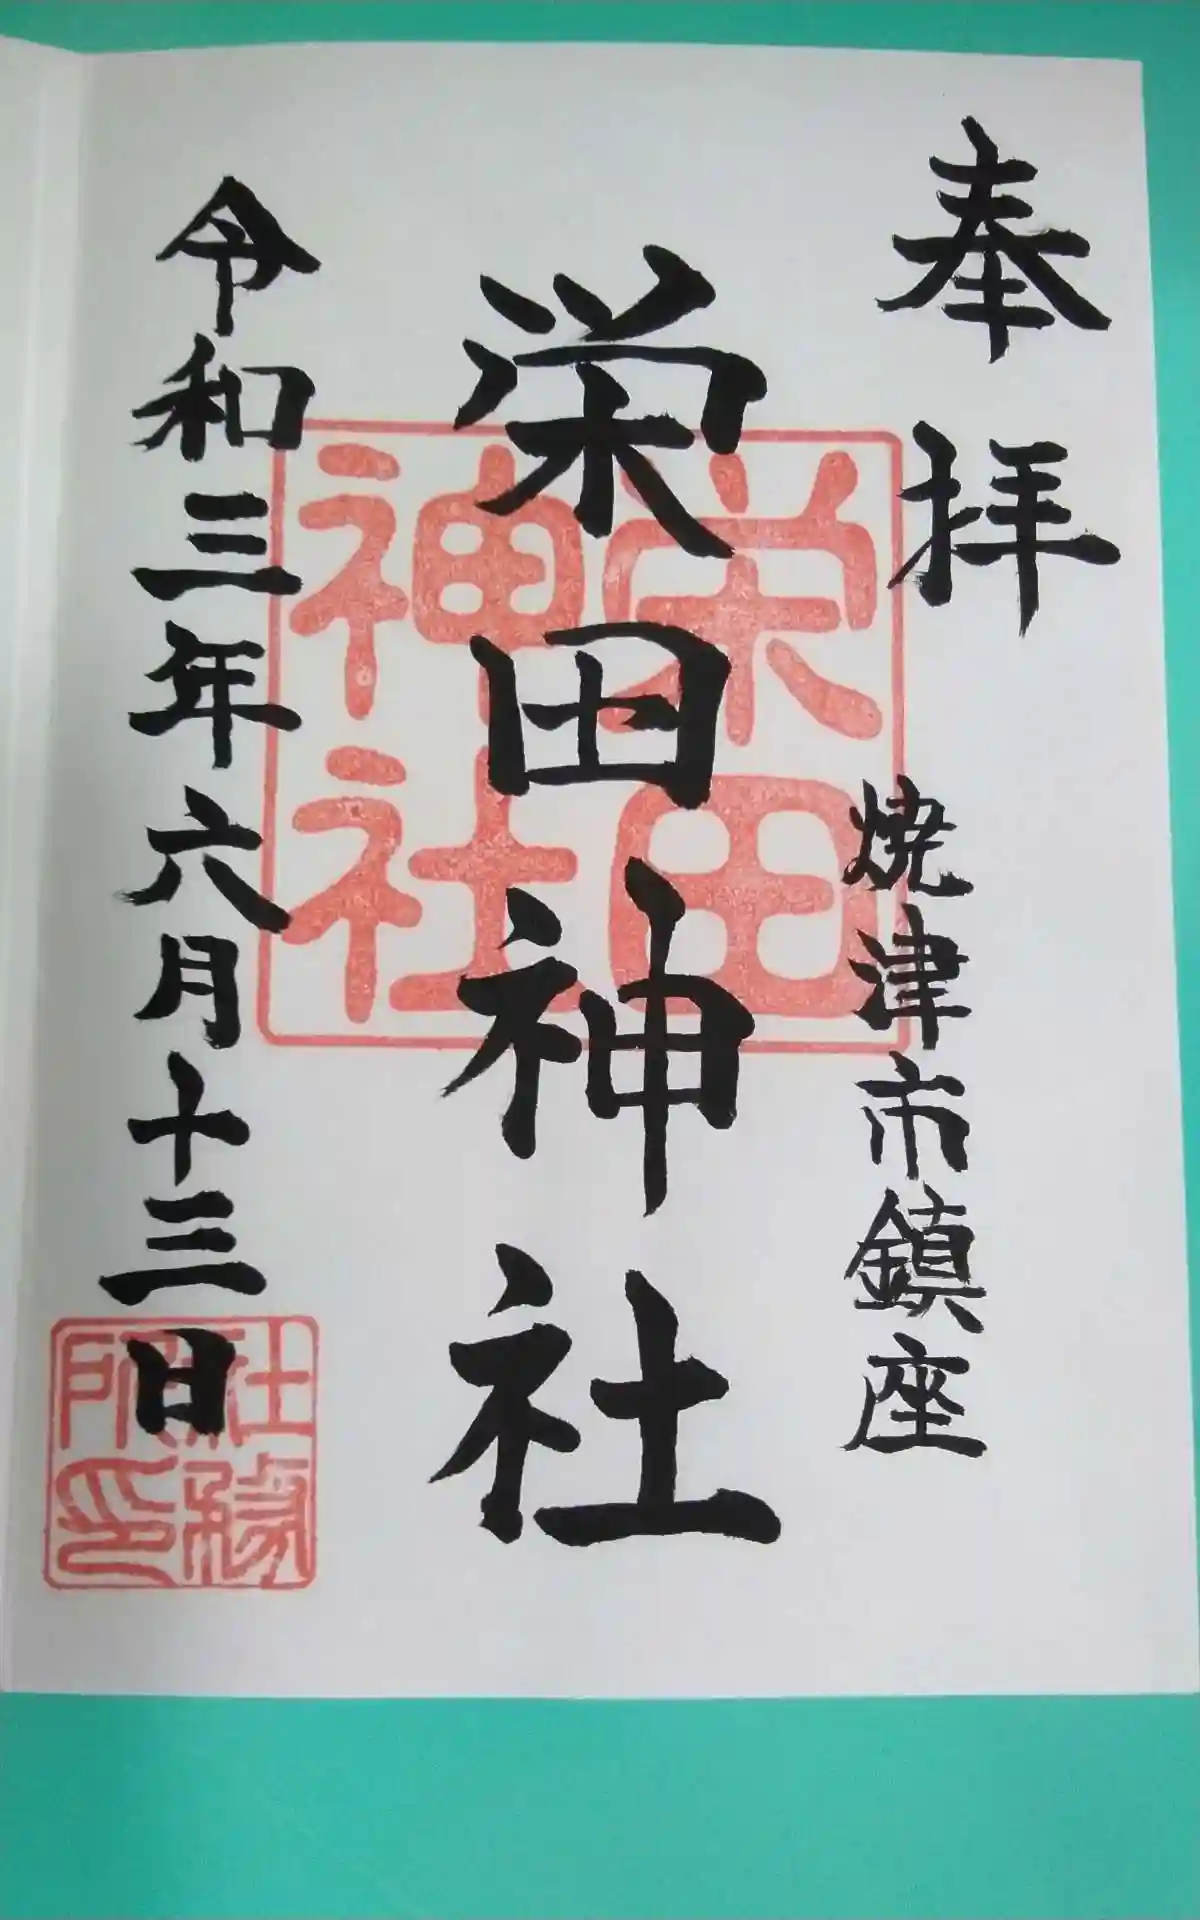 奉拝
焼津市鎮座
栄田神社
栄田
神社
令和三年六月十三日
社務
所印